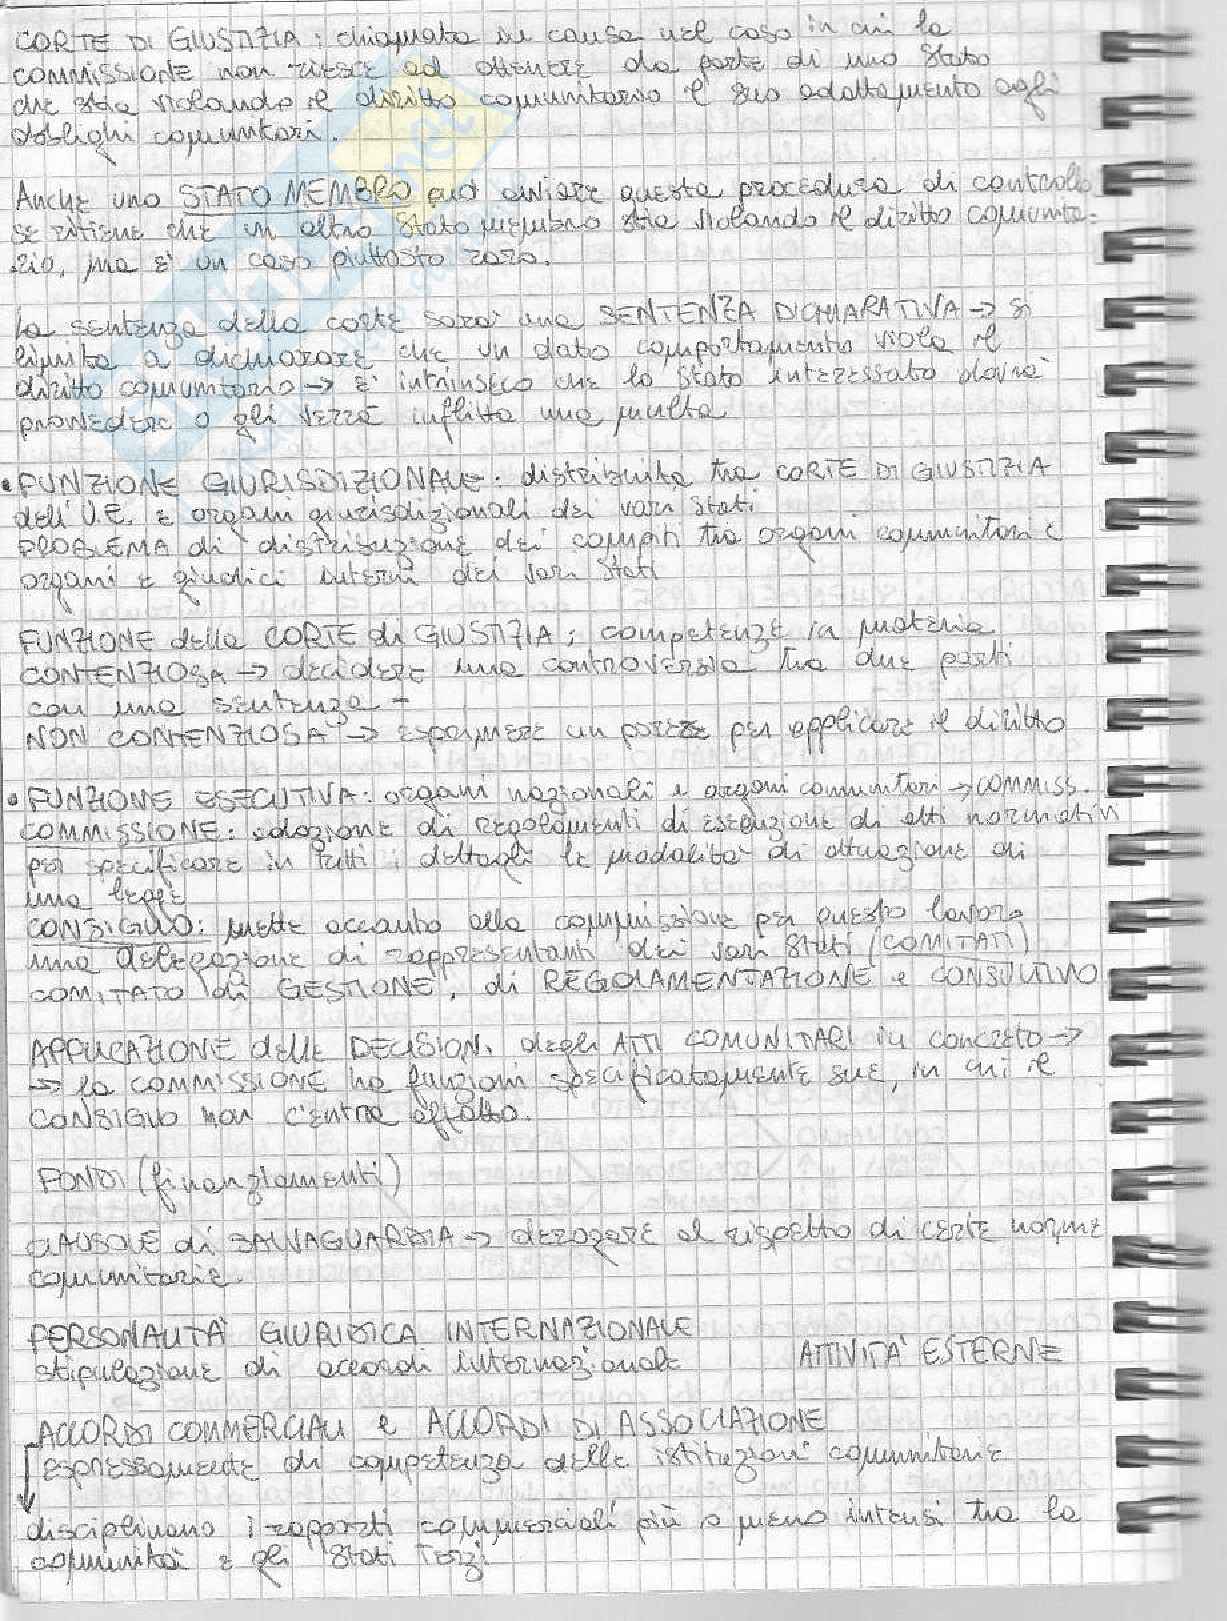 CORTE DI GIUSTIZIA: chiamata in causa nel caso in cui la
COMMISSIONE non riesce ad ottenere da parte di uno Stato
che stia violando il diritto comunitario il suo adattamento agli
obblighi comunitari.
Anche uno STATO MEMBRO può avviare questa procedura di controllo
se ritiene che un altro Stato membro stia violando il diritto comunita=
rio, ma è un caso piuttosto raro.
La sentenza della corte sarà una SENTENZA DICHIARATIVA → si
limita a dichiarare che un dato comportamento viola il
diritto comunitario → è intrinseco che lo Stato interessato dovrà
provvedere o gli verrà inflitta una multa
• FUNZIONE GIURISDIZIONALE: distribuita tra CORTE DI GIUSTIZIA
dell'U.E. e organi giurisdizionali dei vari Stati
PROBLEMA di distribuzione dei compiti tra organi comunitari e
organi e giudici interni dei vari Stati
FUNZIONE della CORTE di GIUSTIZIA: competenze in materia
CONTENZIOSA → decidere una controversia tra due parti
con una sentenza -
NON CONTENZIOSA → esprimere un parere per applicare il diritto
• FUNZIONE ESECUTIVA: organi nazionali e organi comunitari → COMMISS.
COMMISSIONE: adozione di regolamenti di esecuzione di atti normativi
per specificare in tutti i dettagli le modalità di attuazione di
una legge
CONSIGLIO: mette accanto alla commissione per questo lavoro
una delegazione di rappresentanti dei vari Stati (COMITATI)
COMITATO di GESTIONE, di REGOLAMENTAZIONE e CONSULTIVO
APPLICAZIONE delle DECISIONI degli ATTI COMUNITARI in concreto →
→ la COMMISSIONE ha funzioni specificatamente sue, in cui il
CONSIGLIO non c'entra affatto.
FONDI (finanziamenti)
CLAUSOLE di SALVAGUARDIA → derogare al rispetto di certe norme
comunitarie.
PERSONALITÀ GIURIDICA INTERNAZIONALE
stipulazione di accordi internazionali ATTIVITÀ ESTERNE
ACCORDI COMMERCIALI e ACCORDI DI ASSOCIAZIONE
espressamente di competenza delle istituzioni comunitarie
disciplinano i rapporti commerciali più o meno intensi tra la
comunità e gli Stati Terzi